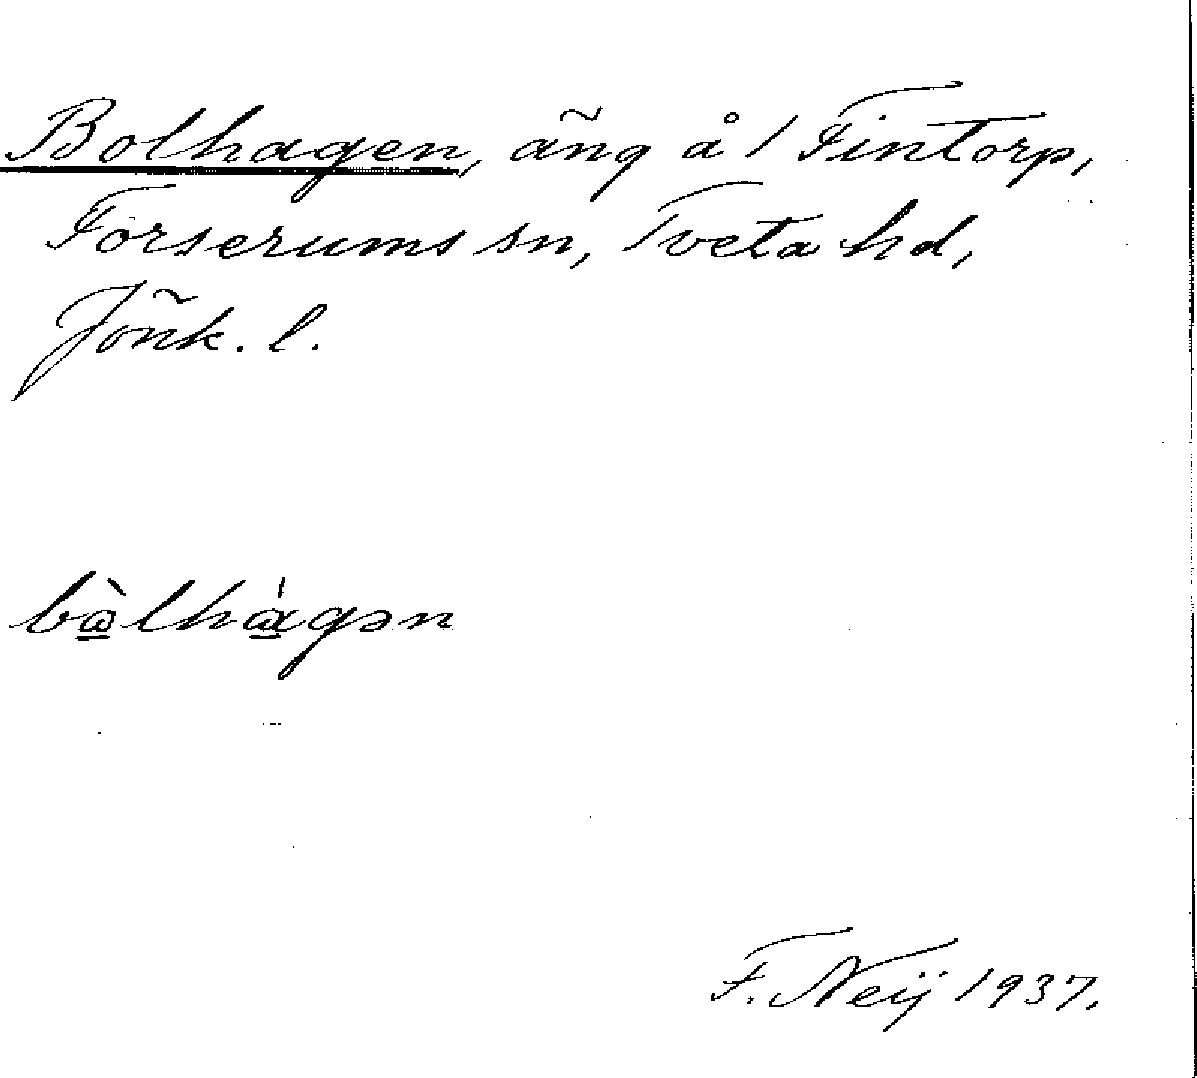 Bolhagen, äng å 1 Fintorp,
Forserums sn, Tveta hd,
Jönk. l.
bὼ̲lhα̲̍gən
F. Neij 1937.